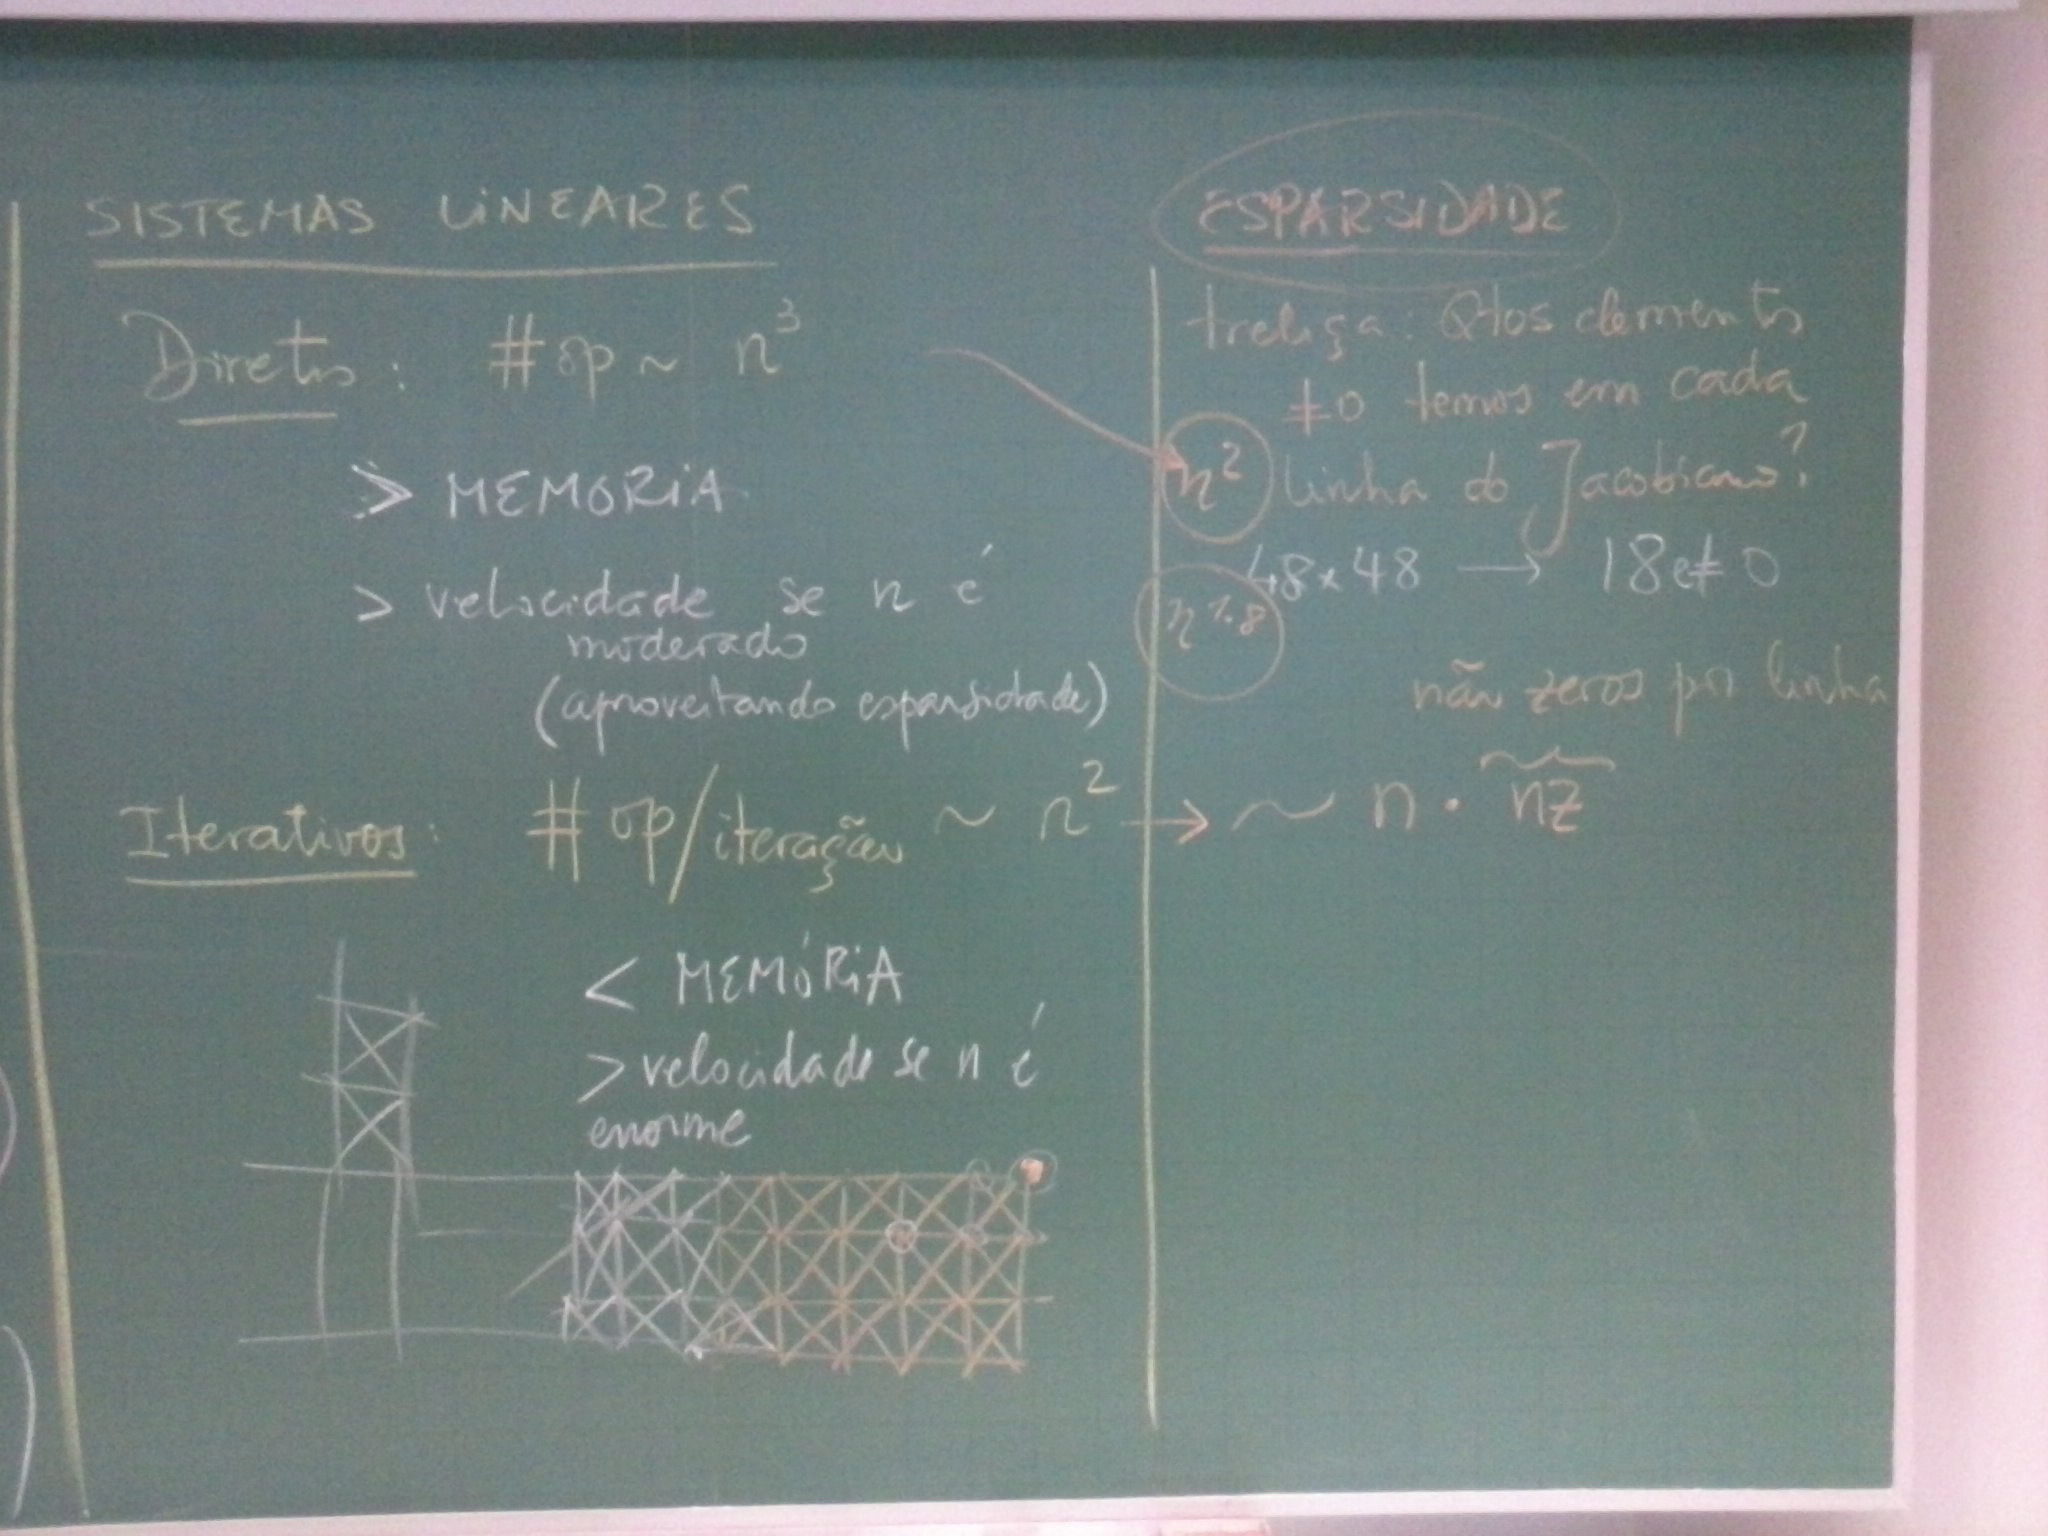 SISTEMAS LINEARES
Diretos: #op ~ n³
> MEMORIA
> velocidade se n é
moderado
(aproveitando esparsidade)
Iterativos: # op/iteração ~ n² → ~ n · nz
< MEMÓRIA
> velocidade se n é
enorme
ESPARSIDADE
treliça: Qtos elementos
≠0 temos em cada
n² linha do Jacobiano?
48×48 → 18 el ≠ 0
n^1.8
não zeros por linha